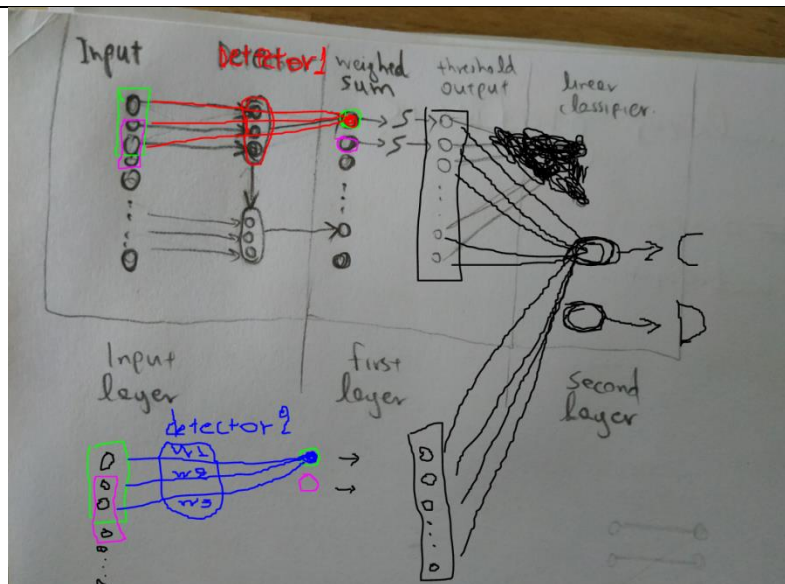 Input
Detector1
weighed
sum
threshold
output
linear
classifier.
C
D
Input
layer
first
layer
second
layer
detector2
w1
w2
w3